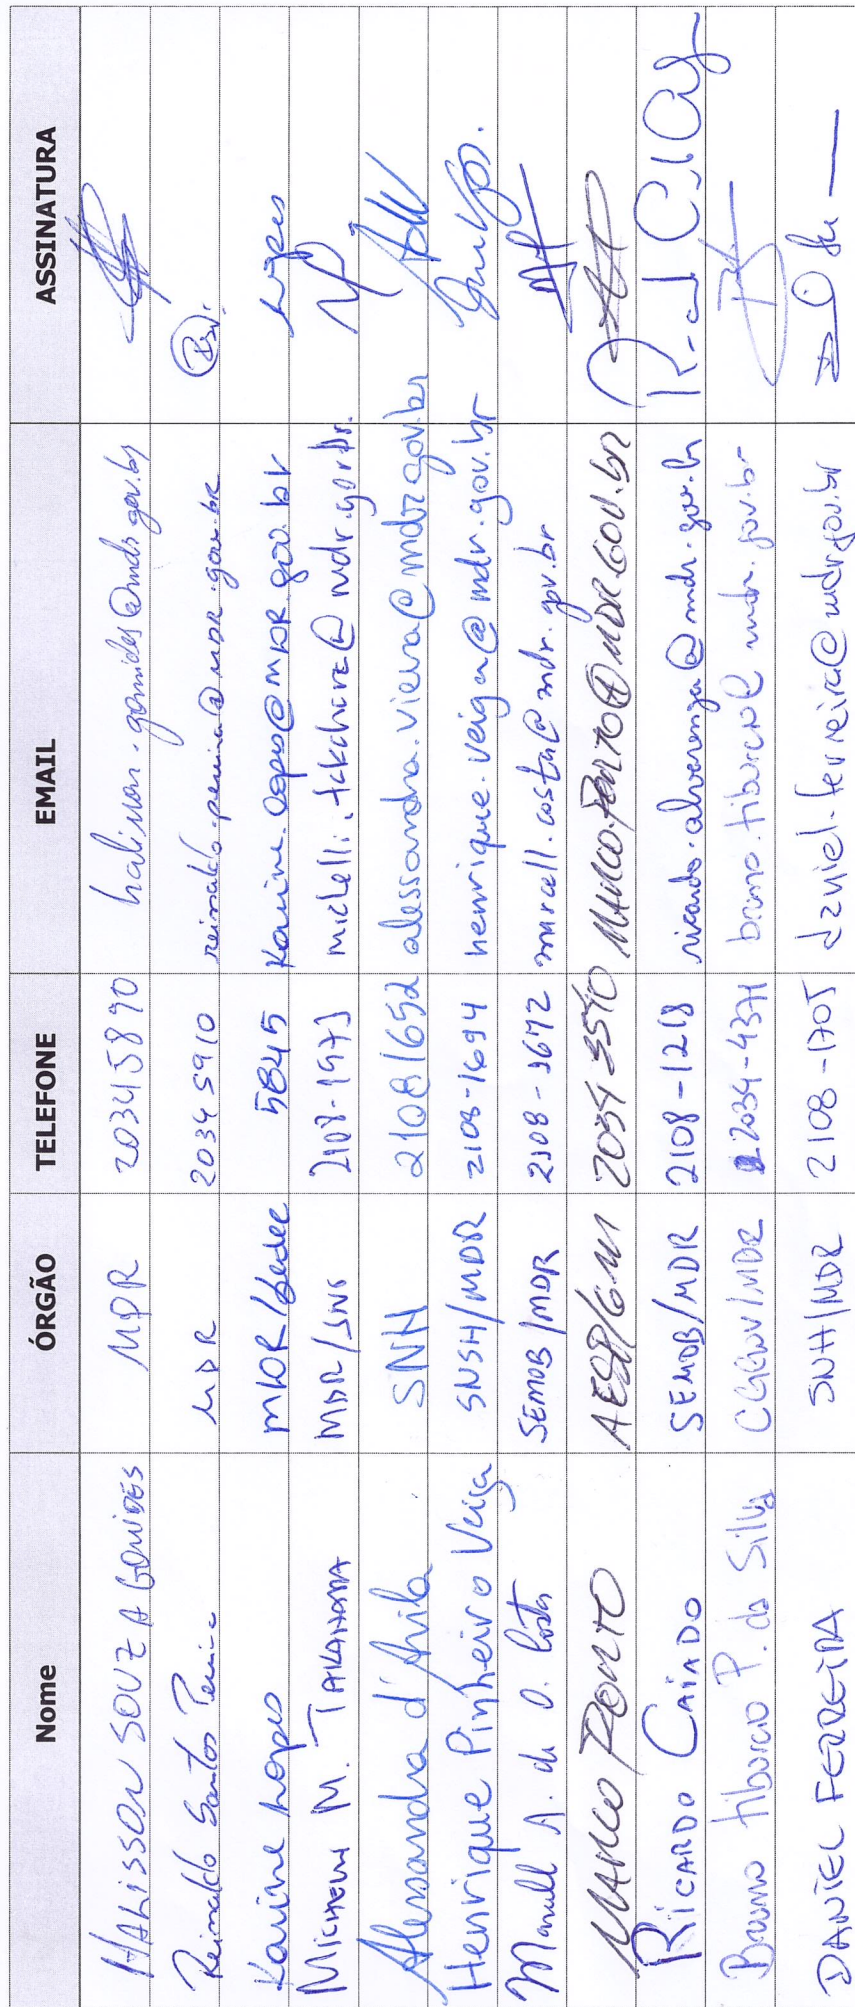 Nome ÓRGÃO TELEFONE EMAIL ASSINATURA
HALISSON SOUZA GOMIDES MDR 20345890 halisson.gomides@mdr.gov.br
Reinaldo Santos Pereira MDR 2034 5910 reinaldo.pereira@MDR.gov.br
Karine Lopes MDR/Sedec 5845 Karine.lopes@MDR.gov.br Lopes
MICHELLI M. TAKAHARA MDR/SNS 2108-1973 michelli.takahara@mdr.gov.br
Alessandra d'Avila SNH 21081652 alessandra.vieira@mdr.gov.br
Henrique Pinheiro Veiga SNSH/MDR 2108-1694 henrique.veiga@mdr.gov.br
A. de O. Costa SEMOB/MDR 2108-1672 marcell.costa@mdr.gov.br
MARCO PORTO 2034 5590 MARCO.PORTO@MDR.GOV.BR
RICARDO CAIADO SEMOB/MDR 2108-1218 ricardo.alvarenga@mdr.gov.br
Bruno Tiburcio P. da Silva 2034-4371 bruno.tiburcio@mdr.gov.br
DANIEL FERREIRA SNH/MDR 2108-1705 daniel.ferreira@mdr.gov.br